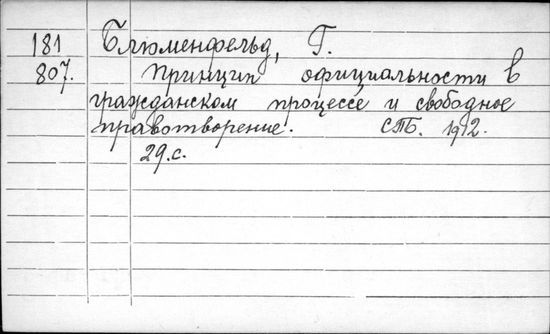 181 Блюменфельд, Г.
807. Принцип официальности в
гражданском процессе и свободное
правотворение. СПБ. 1912.
29.с.